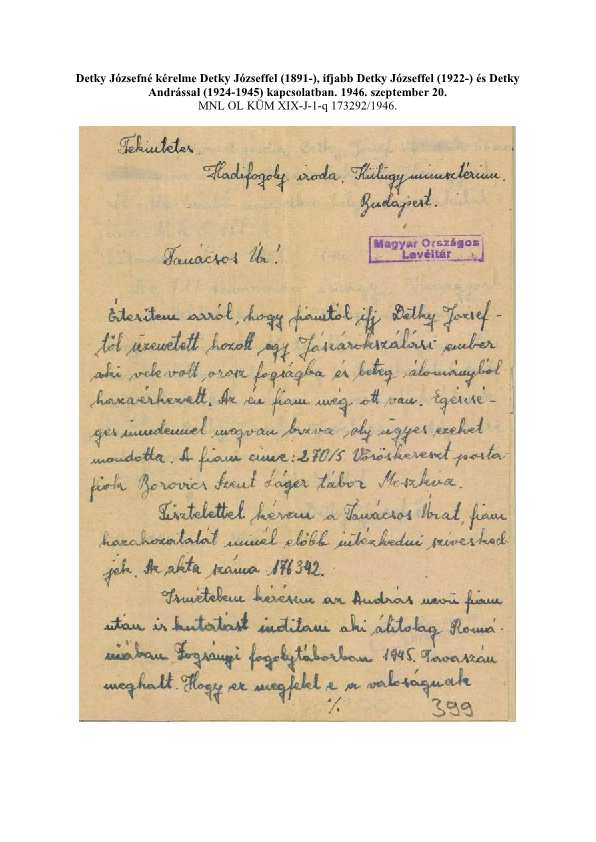 Detky Józsefné kérelme Detky Józseffel (1891-), ifjabb Detky Józseffel (1922-) és Detky
Andrással (1924-1945) kapcsolatban. 1946. szeptember 20.
MNL OL KÜM XIX-J-1-q 173292/1946.
Tekintetes
Hadifogoly iroda. Külügyminisztérium.
Budapest.
Magyar Országos
Levéltár
Tanácsos Úr!
Értesitem arról, hogy fiamtól ifj. Détky József-
től üzenetett hozott egy Jászárokszálási ember
aki vele volt orosz fogságba és beteg álományból
hazaérkezett. Az én fiam még ott van. Egéssé-
ges mindennel megvan bizva oly ügyes ezeket
mondotta. A fiam cime: 270/5 Vöröskereszt posta-
fiók Borovics Szent Láger tábor Moszkva.
Tisztelettel kérem a Tanácsos Urat, fiam
hazahozatalát minél elöbb intézkedni sziveskedj-
jék. Az akta száma 176342.
Ismételem kérésem az András nevü fiam
után is kutatást inditani aki álitolag Romá-
niában Fogsányi fogolytáborban 1945. Tavaszán
meghalt. Hogy ez megfelel e a valoságnak
./.
399